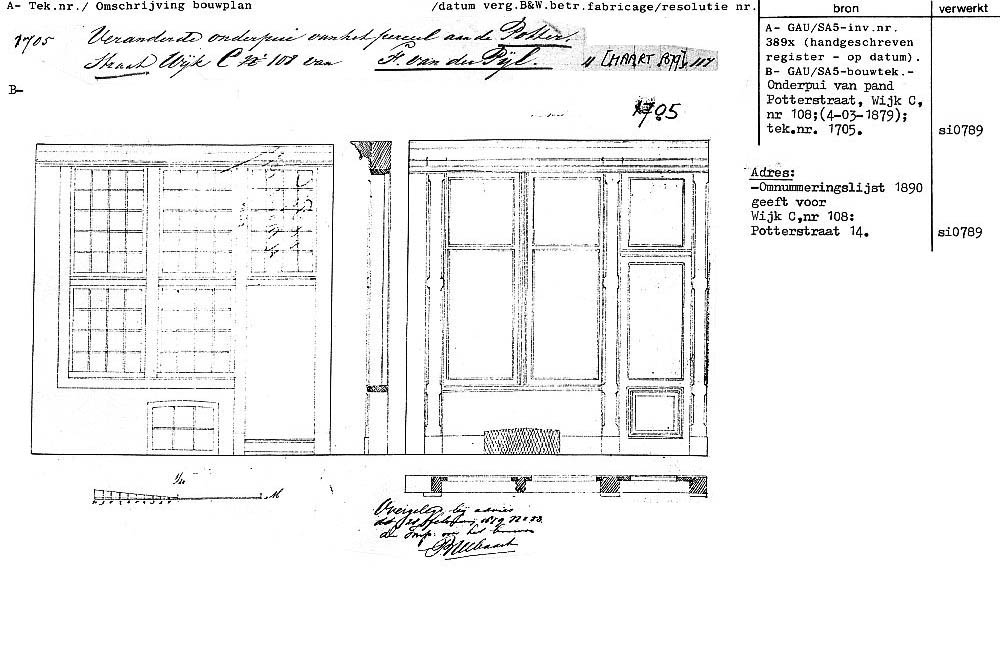 A- Tek.nr./ Omschrijving bouwplan /datum verg.B&W.betr.fabricage/resolutie nr.
1705 Veranderde onderpui van het perceel aan de Potter-
Straat Wijk C No 108 van F. van der Pijl. 4 [MAART 1879], 117
B-
1705
1/20
M
Overgelegd bij advies
dd 28 februarij 1879 No 53
de Insp: over het bouwen
bron verwerkt
A- GAU/SA5-inv.nr.
389x (handgeschreven
register - op datum).
B- GAU/SA5-bouwtek.-
Onderpui van pand
Potterstraat, Wijk C,
nr 108;(4-03-1879);
tek.nr. 1705. si0789
Adres:
-Omnummeringslijst 1890
geeft voor
Wijk C,nr 108:
Potterstraat 14. si0789